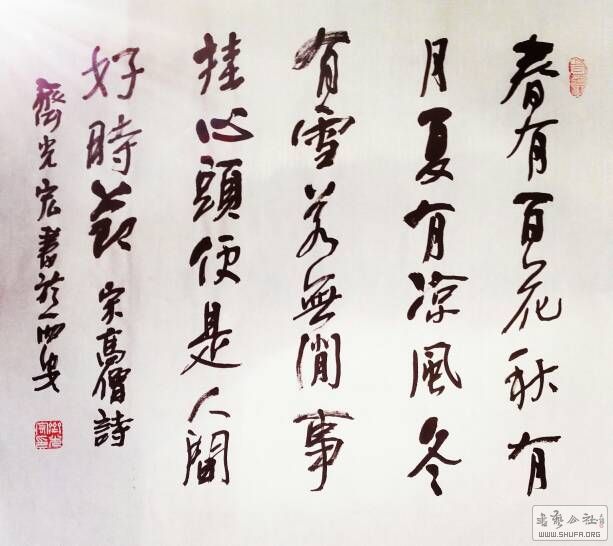 春有百花秋有
月夏有凉風冬
有雪若無閒事
挂心頭便是人間
好時節
宋高僧詩
齊光宏書於
WWW.SHUFA.ORG